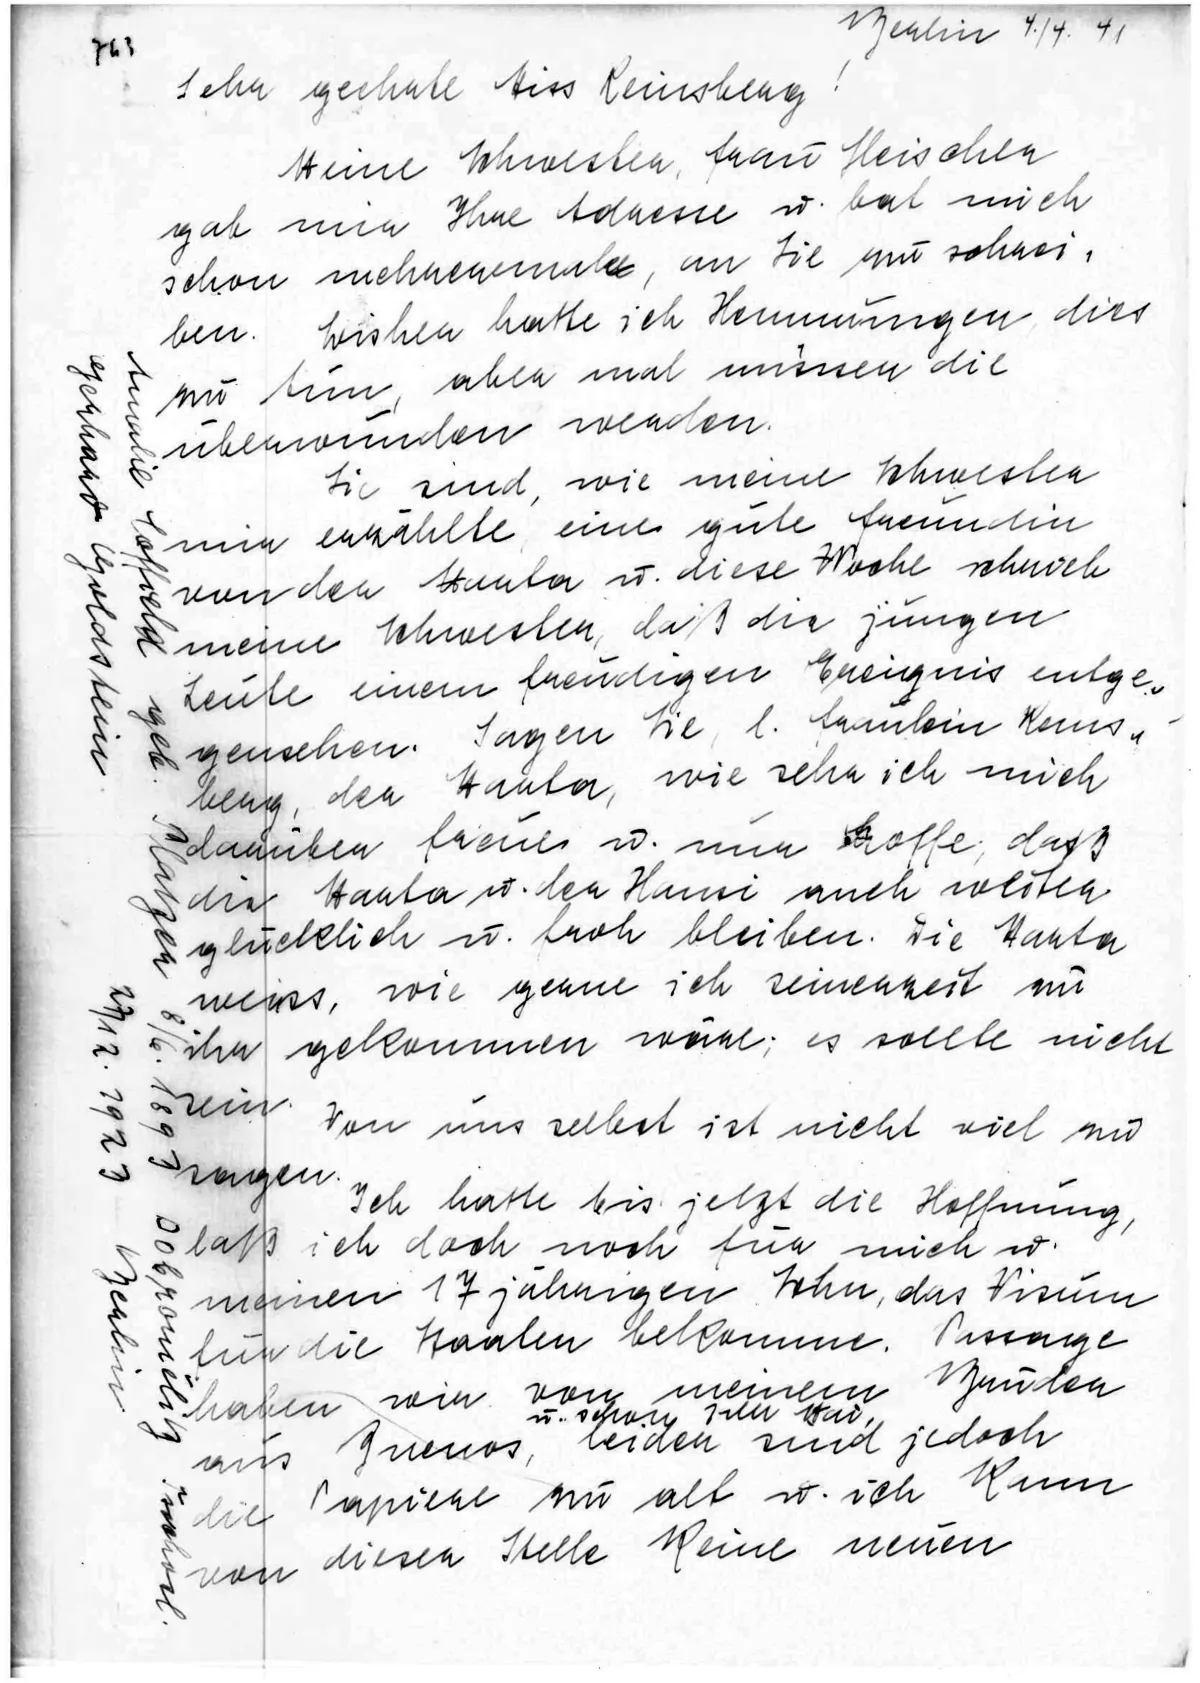 763
Berlin 4./4. 41
Sehr geehrte Miss Reinsberg!
Meine Schwester, Frau Fleischer
gab mir Ihre Adresse u. bat mich
schon mehreremale, an Sie zu schrei-
ben. Bisher hatte ich Hemmungen dies
zu tun, aber mal müssen die
überwunden werden.
Sie sind, wie meine Schwester
mir erzählte, eine gute Freundin
von der Marta u. diese Woche schrieb
meine Schwester, daß die jungen
Leute einem freudigen Ereignis entge-
gensehen. Sagen Sie, l. Fräulein Reins-
berg, der Marta, wie sehr ich mich
darüber freue u. nur hoffe, daß
die Marta u. der Hansi auch weiter
glücklich u. froh bleiben. Die Marta
weiss, wie gerne ich seinerzeit zu
ihr gekommen wäre; es sollte nicht
sein.
Von uns selbst ist nicht viel zu
sagen.
Ich hatte bis jetzt die Hoffnung,
daß ich doch noch für mich u.
meinen 17 jährigen Sohn, das Visum
für die Staaten bekomme. Passage
haben wir von meinem Bruder
u. schon seit Mai,
aus Buenos, leider sind jedoch
die Papiere zu alt u. ich kann
von dieser Stelle keine neuen
Amalie geb. Platzer 8/6. 1893
Gerhard Goldstein 1923 Berlin